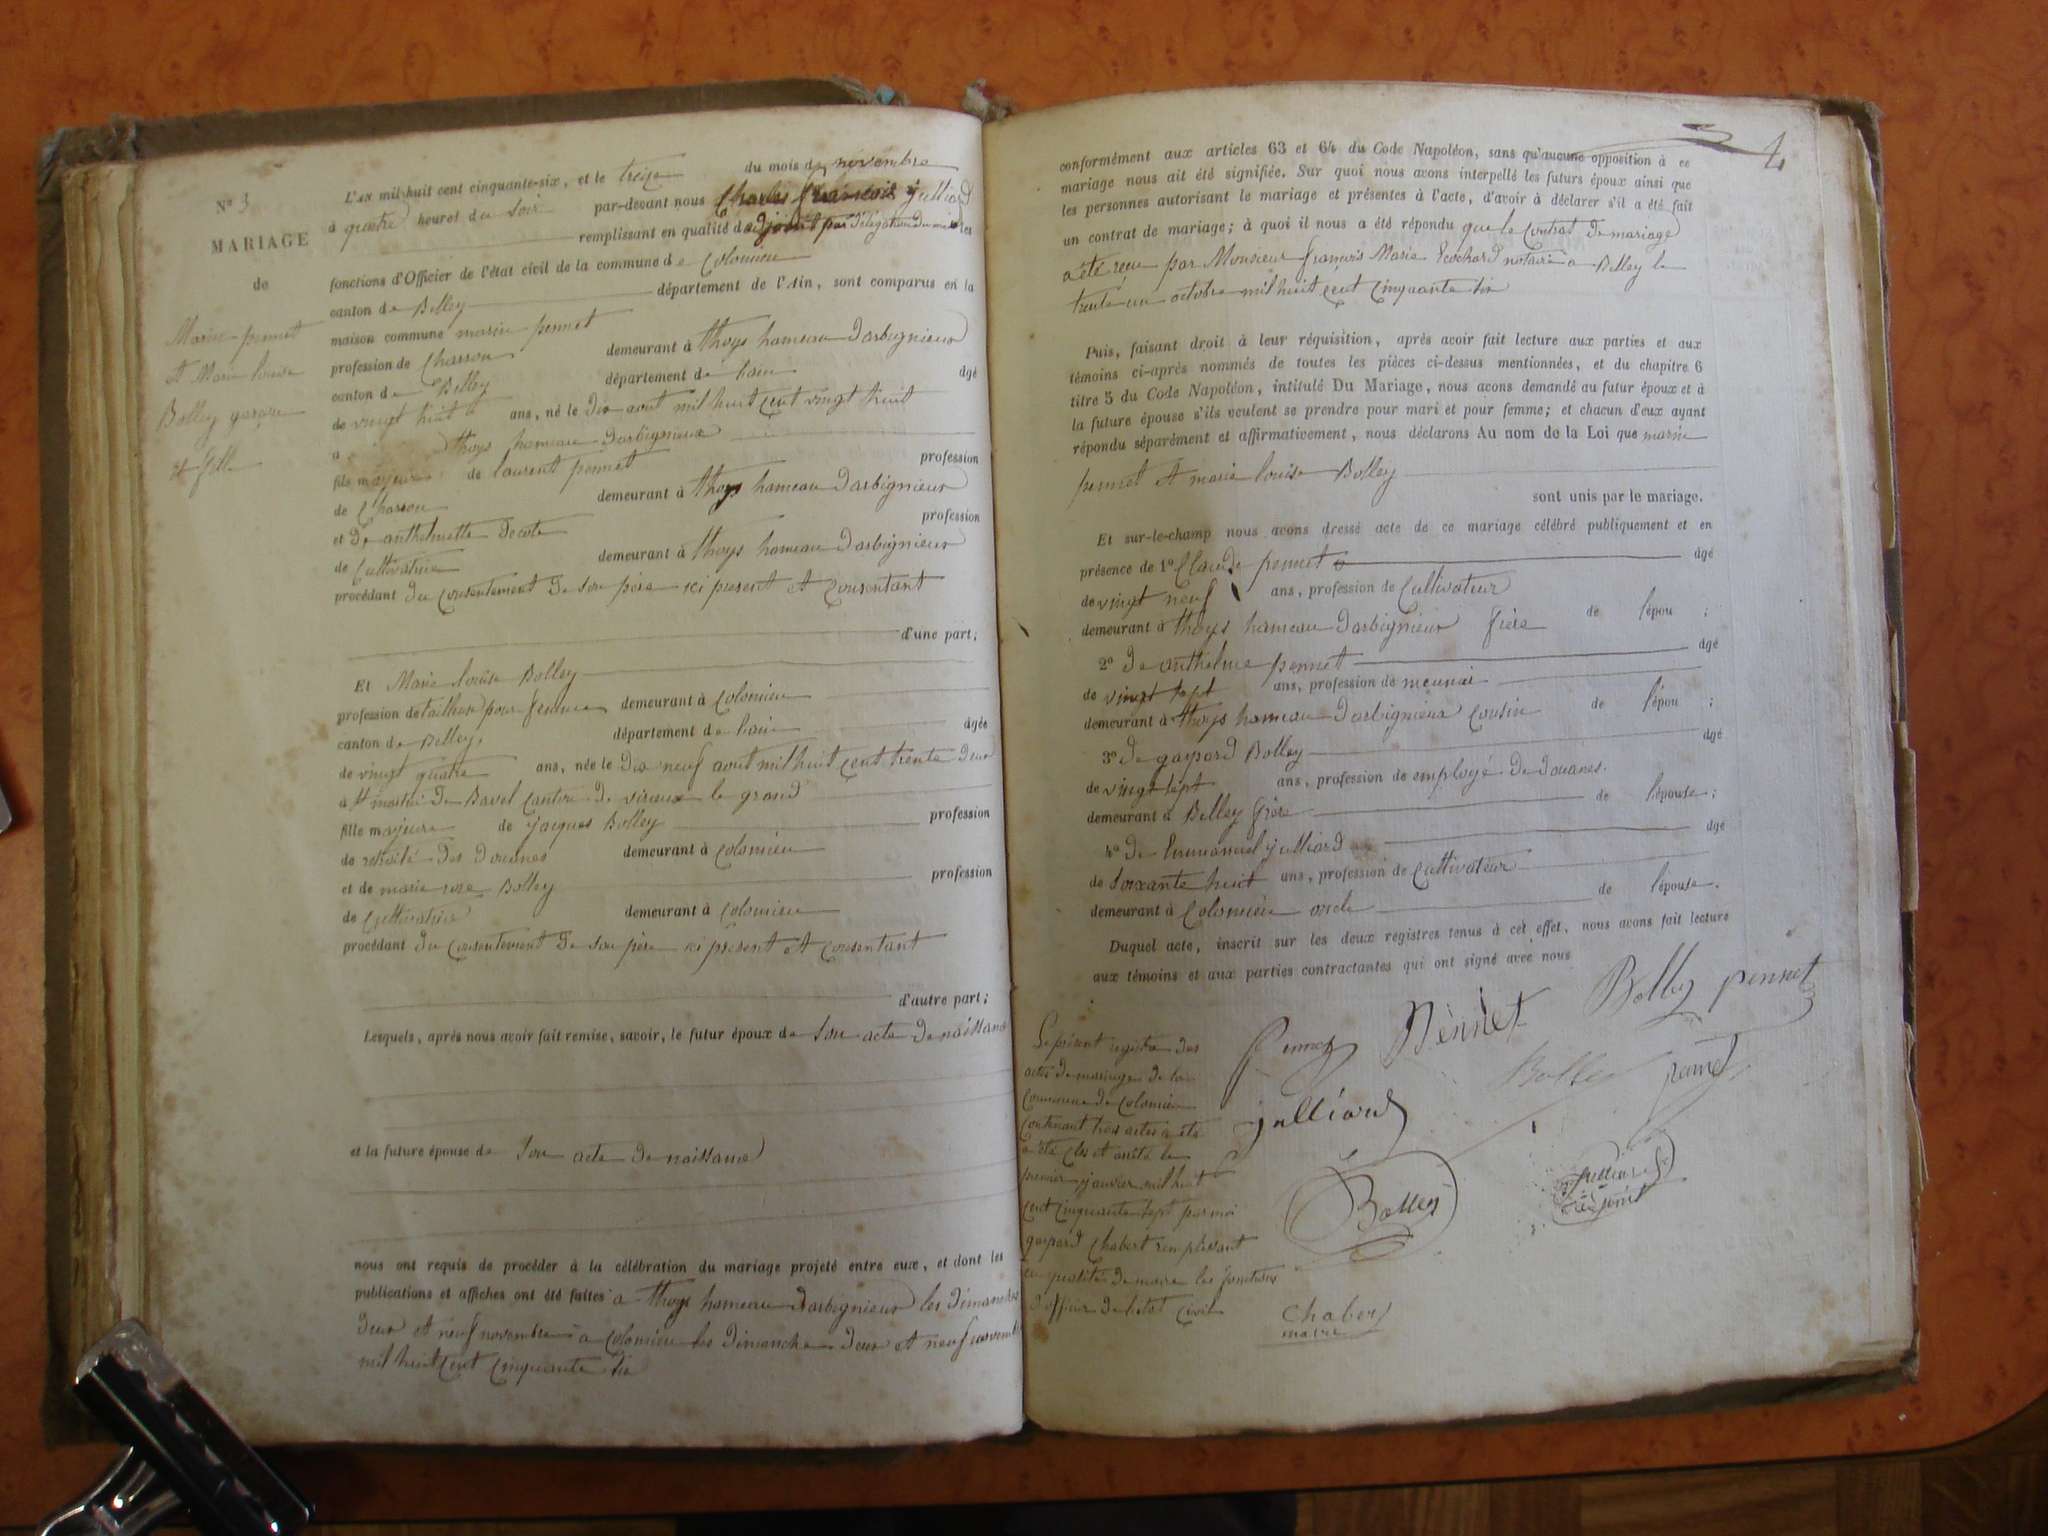 N° 3
MARIAGE
de
Marin pennet
et Marie louise
Bolley garçon
et fille
L'AN mil huit cent cinquante-six, et le treize du mois de novembre
à quatre heures du soir par-devant nous Charles francois julliard
remplissant en qualité d'adjoint par délégation du maire les
fonctions d'Officier de l'état civil de la commune de Colomieu
canton de Belley département de l'Ain, sont comparus en la
maison commune marin pennet
profession de Charron demeurant à thoys hameau darbignieux
canton de Belley département de lain âgé
de vingt huit ans, né le dix aout mil huit cent vingt huit
a thoys hameau darbignieux
fils majeur de laurent pennet profession
de Charron demeurant à thoys hameau darbignieux
et de anthelmette decote profession
de Cultivatrice demeurant à thoys hameau darbignieux
procédant du consentement de son père ici present et consentant
d'une part;
Et Marie louise Bolley
profession de tailleuse pour femmes demeurant à Colomieu
canton de Belley, département de lain âgée
de vingt quatre ans, née le dix neuf aout mil huit cent trente deux
à St martin de Bavel canton de virieux le grand
fille majeure de jacques Bolley profession
de retraité des douanes demeurant à Colomieu
et de marie rose Bolley profession
de Cultivatrice demeurant à Colomieu
procédant du consentement de son père ici présent et consentant
d'autre part;
Lesquels, après nous avoir fait remise, savoir, le futur époux de son acte de naissance
et la future épouse de son acte de naissance
nous ont requis de procéder à la célébration du mariage projeté entre eux, et dont les
publications et affiches ont été faites a thoys hameau darbignieux les dimanches
deux et neuf novembre a Colomieu les dimanche deux et neuf novembre
mil huit cent cinquante six
4
conformément aux articles 63 et 64 du Code Napoléon, sans qu'aucune opposition à ce
mariage nous ait été signifiée. Sur quoi nous avons interpellé les futurs époux ainsi que
les personnes autorisant le mariage et présentes à l'acte, d'avoir à déclarer s'il a été fait
un contrat de mariage; à quoi il nous a été répondu que le Contrat de mariage
a été reçu par Monsieur francois Marie Ecochard notaire a Belley le
trente un octobre mil huit cent cinquante six
Puis, faisant droit à leur réquisition, après avoir fait lecture aux parties et aux
témoins ci-après nommés de toutes les pièces ci-dessus mentionnées, et du chapitre 6
titre 5 du Code Napoléon, intitulé Du Mariage, nous avons demandé au futur époux et à
la future épouse s'ils veulent se prendre pour mari et pour femme; et chacun d'eux ayant
répondu séparément et affirmativement, nous déclarons Au nom de la Loi que marin
pennet et marie louise Bolley
sont unis par le mariage.
Et sur-le-champ nous avons dressé acte de ce mariage célébré publiquement et en
présence de 1° Claude pennet âgé
de vingt neuf ans, profession de Cultivateur
demeurant à thoys hameau darbignieux frère de l'épou ;
2° de anthelme pennet âgé
de vingt sept ans, profession de meunier
demeurant à thoys hameau darbignieux cousin de l'épou ;
3° de gaspard Bolley âgé
de vingt sept ans, profession de employé de douanes.
demeurant à Belley frère de l'épouse;
4° de Emmanuel julliard âgé
de soixante huit ans, profession de Cultivateur
demeurant à Colomieu oncle de l'épouse.
Duquel acte, inscrit sur les deux registres tenus à cet effet, nous avons fait lecture
aux témoins et aux parties contractantes qui ont signé avec nous
Bolley pennet
pennet Pennet
Bolley pennet
julliard
Bolley
julliard
adjoint
Le présent registre des
actes de mariage de la
Commune de Colomieu
Contenant trois actes
a été clos et arrêté le
premier janvier mil huit
cent cinquante sept par moi
gaspard Chabert remplissant
en qualité de maire les fonctions
d'officier de l'état civil
Chabert
maire